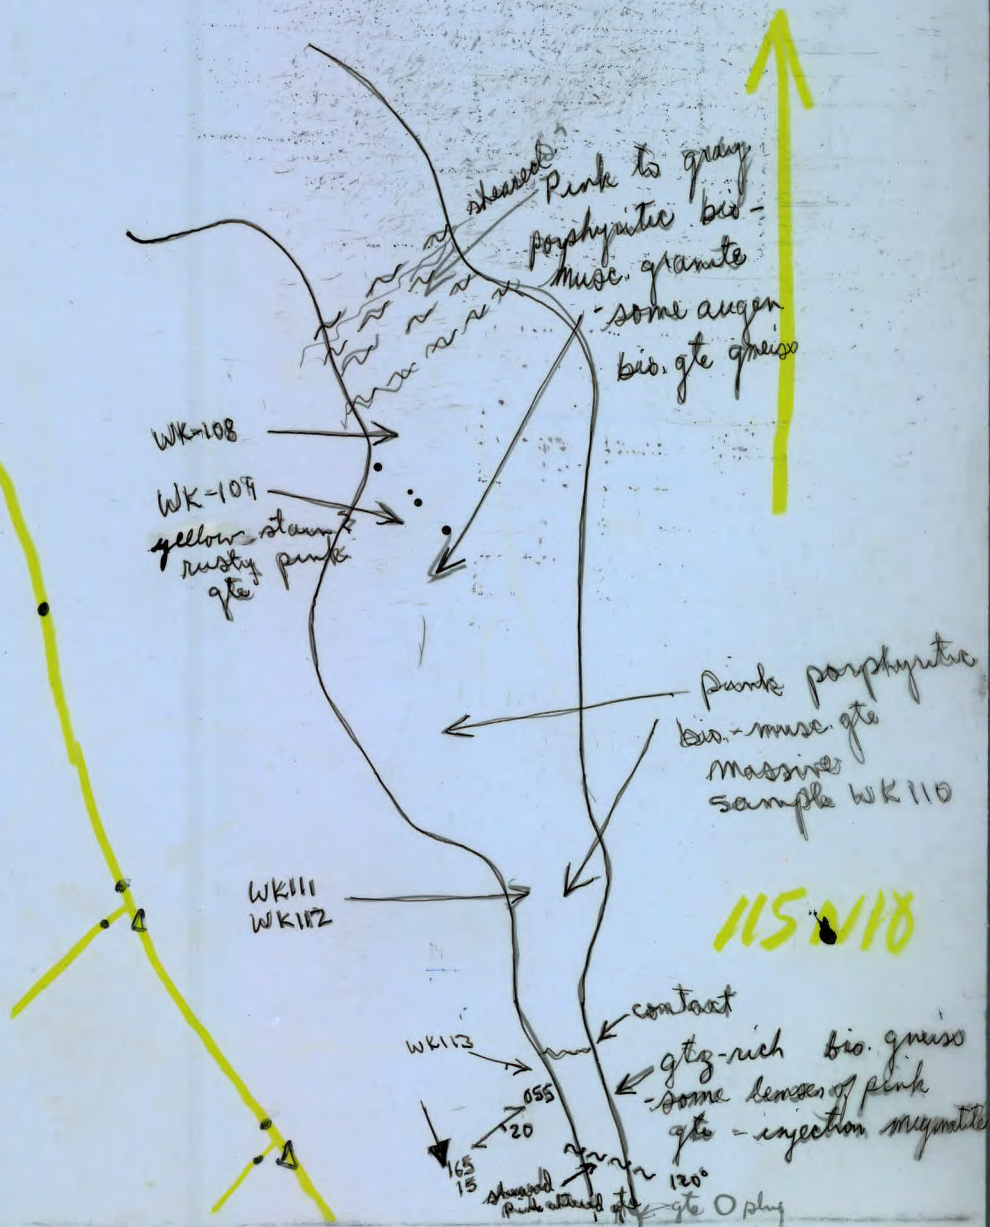 sheared
Pink to gray
porphyritic bio-
musc. granite
- some augen
bio. gte gneiss
WK-108
WK-109
yellow stain
rusty pink
gte
pink porphyritic
bio.-musc. gte
massive
sample WK 110
WK111
WK112
115N10
contact
WK113
qtz-rich bio. gneiss
- some lenses of pink
gte - injection migmatite
055
20
165
15
sheared
pink altered gte
120°
gte plug